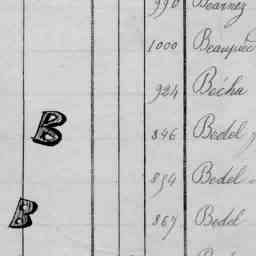 990 Béarnez
1000 Beaupied
924 Bécha
B
846 Bedel
854 Bedel
B
867 Bedel